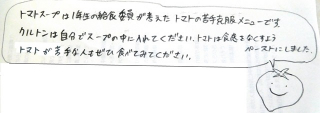 トマトスープは1年生の給食委員が考えた トマトの苦手克服メニューです
クルトンは自分でスープの中に入れてください。トマトは食感をなくすよう
ペーストにしました。
トマトが苦手な人もぜひ食べてみてください。